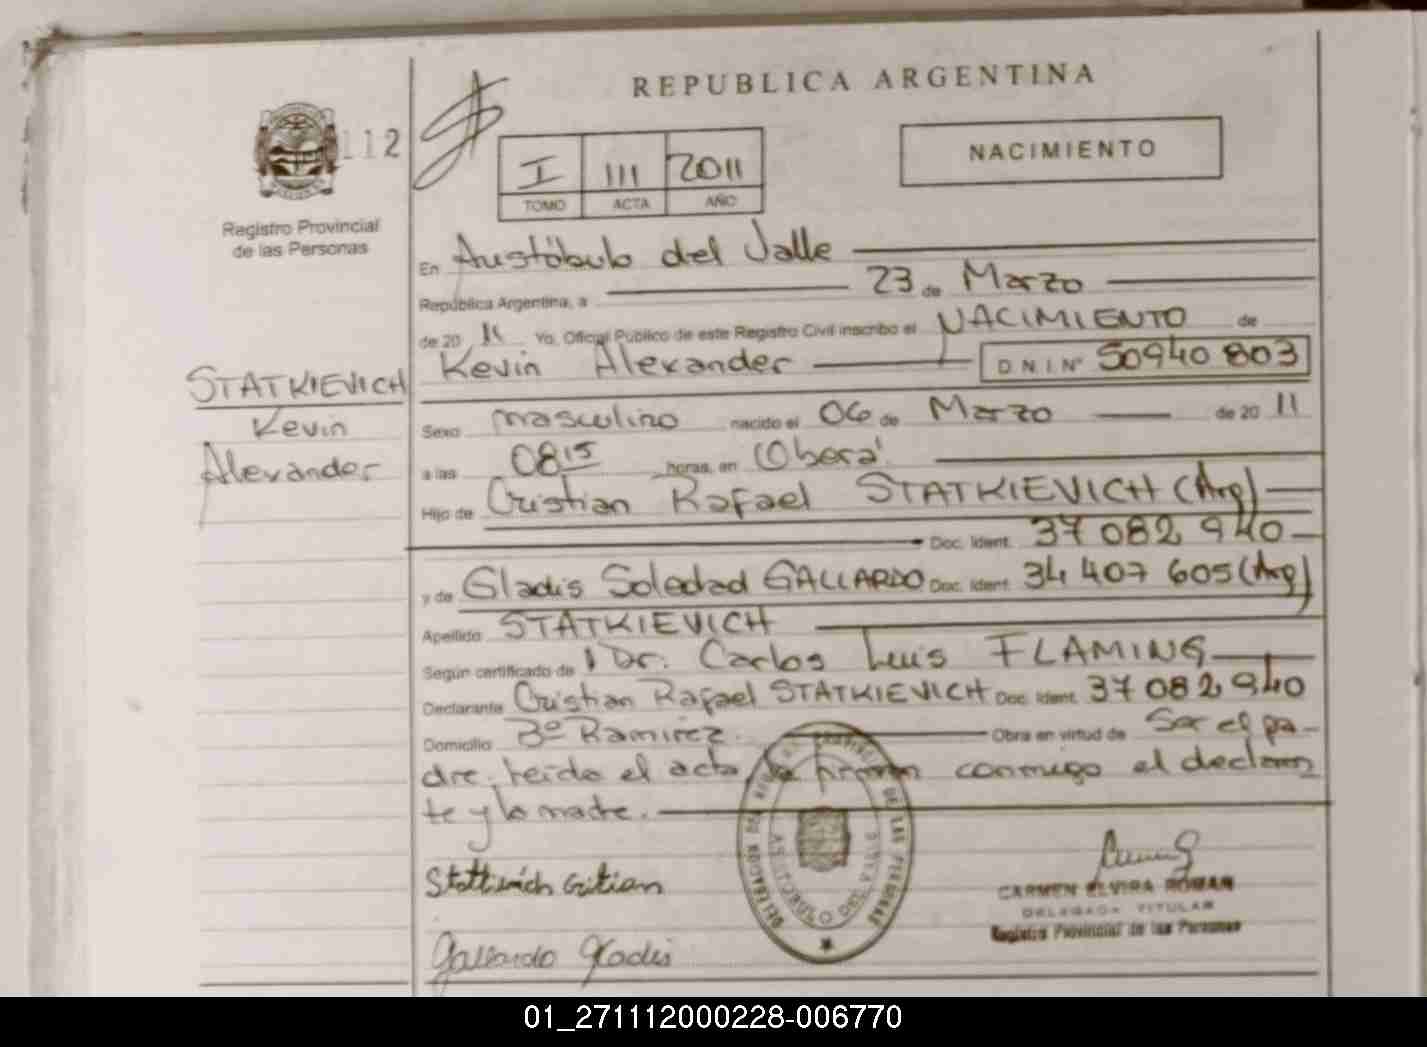 REPUBLICA ARGENTINA
112
I III 2011
TOMO ACTA AÑO
NACIMIENTO
Registro Provincial
de las Personas
En Aristóbulo del Valle
República Argentina, a 23 de Marzo
de 2011 Yo, Oficial Público de este Registro Civil inscribo el NACIMIENTO de
Kevin Alexander DNI Nº 50940803
STATKIEVICH
Kevin
Alexander
Sexo masculino nacido el 06 de Marzo de 2011
a las 08 15 horas, en Oberá.
Hijo de Cristian Rafael STATKIEVICH (Arg)
Doc. Ident. 37 082 940
y de Gladis Soledad GALLARDO Doc. Ident. 34 407 605 (Arg)
Apellido STATKIEVICH
Según certificado de Dr. Carlos Luis FLAMING
Declarante Cristian Rafael STATKIEVICH Doc. Ident. 37 082 940
Domicilio Bº Ramirez. Obra en virtud de Ser el pa-
dre, leida el acta, la firman conmigo el declaran
te y la madre.
Gallardo Gladis
CARMEN ELVIRA ROMAN
DELEGADA TITULAR
Registro Provincial de las Personas
DE LAS PERSONAS
ARISTOBULO DEL VALLE
01_271112000228-006770